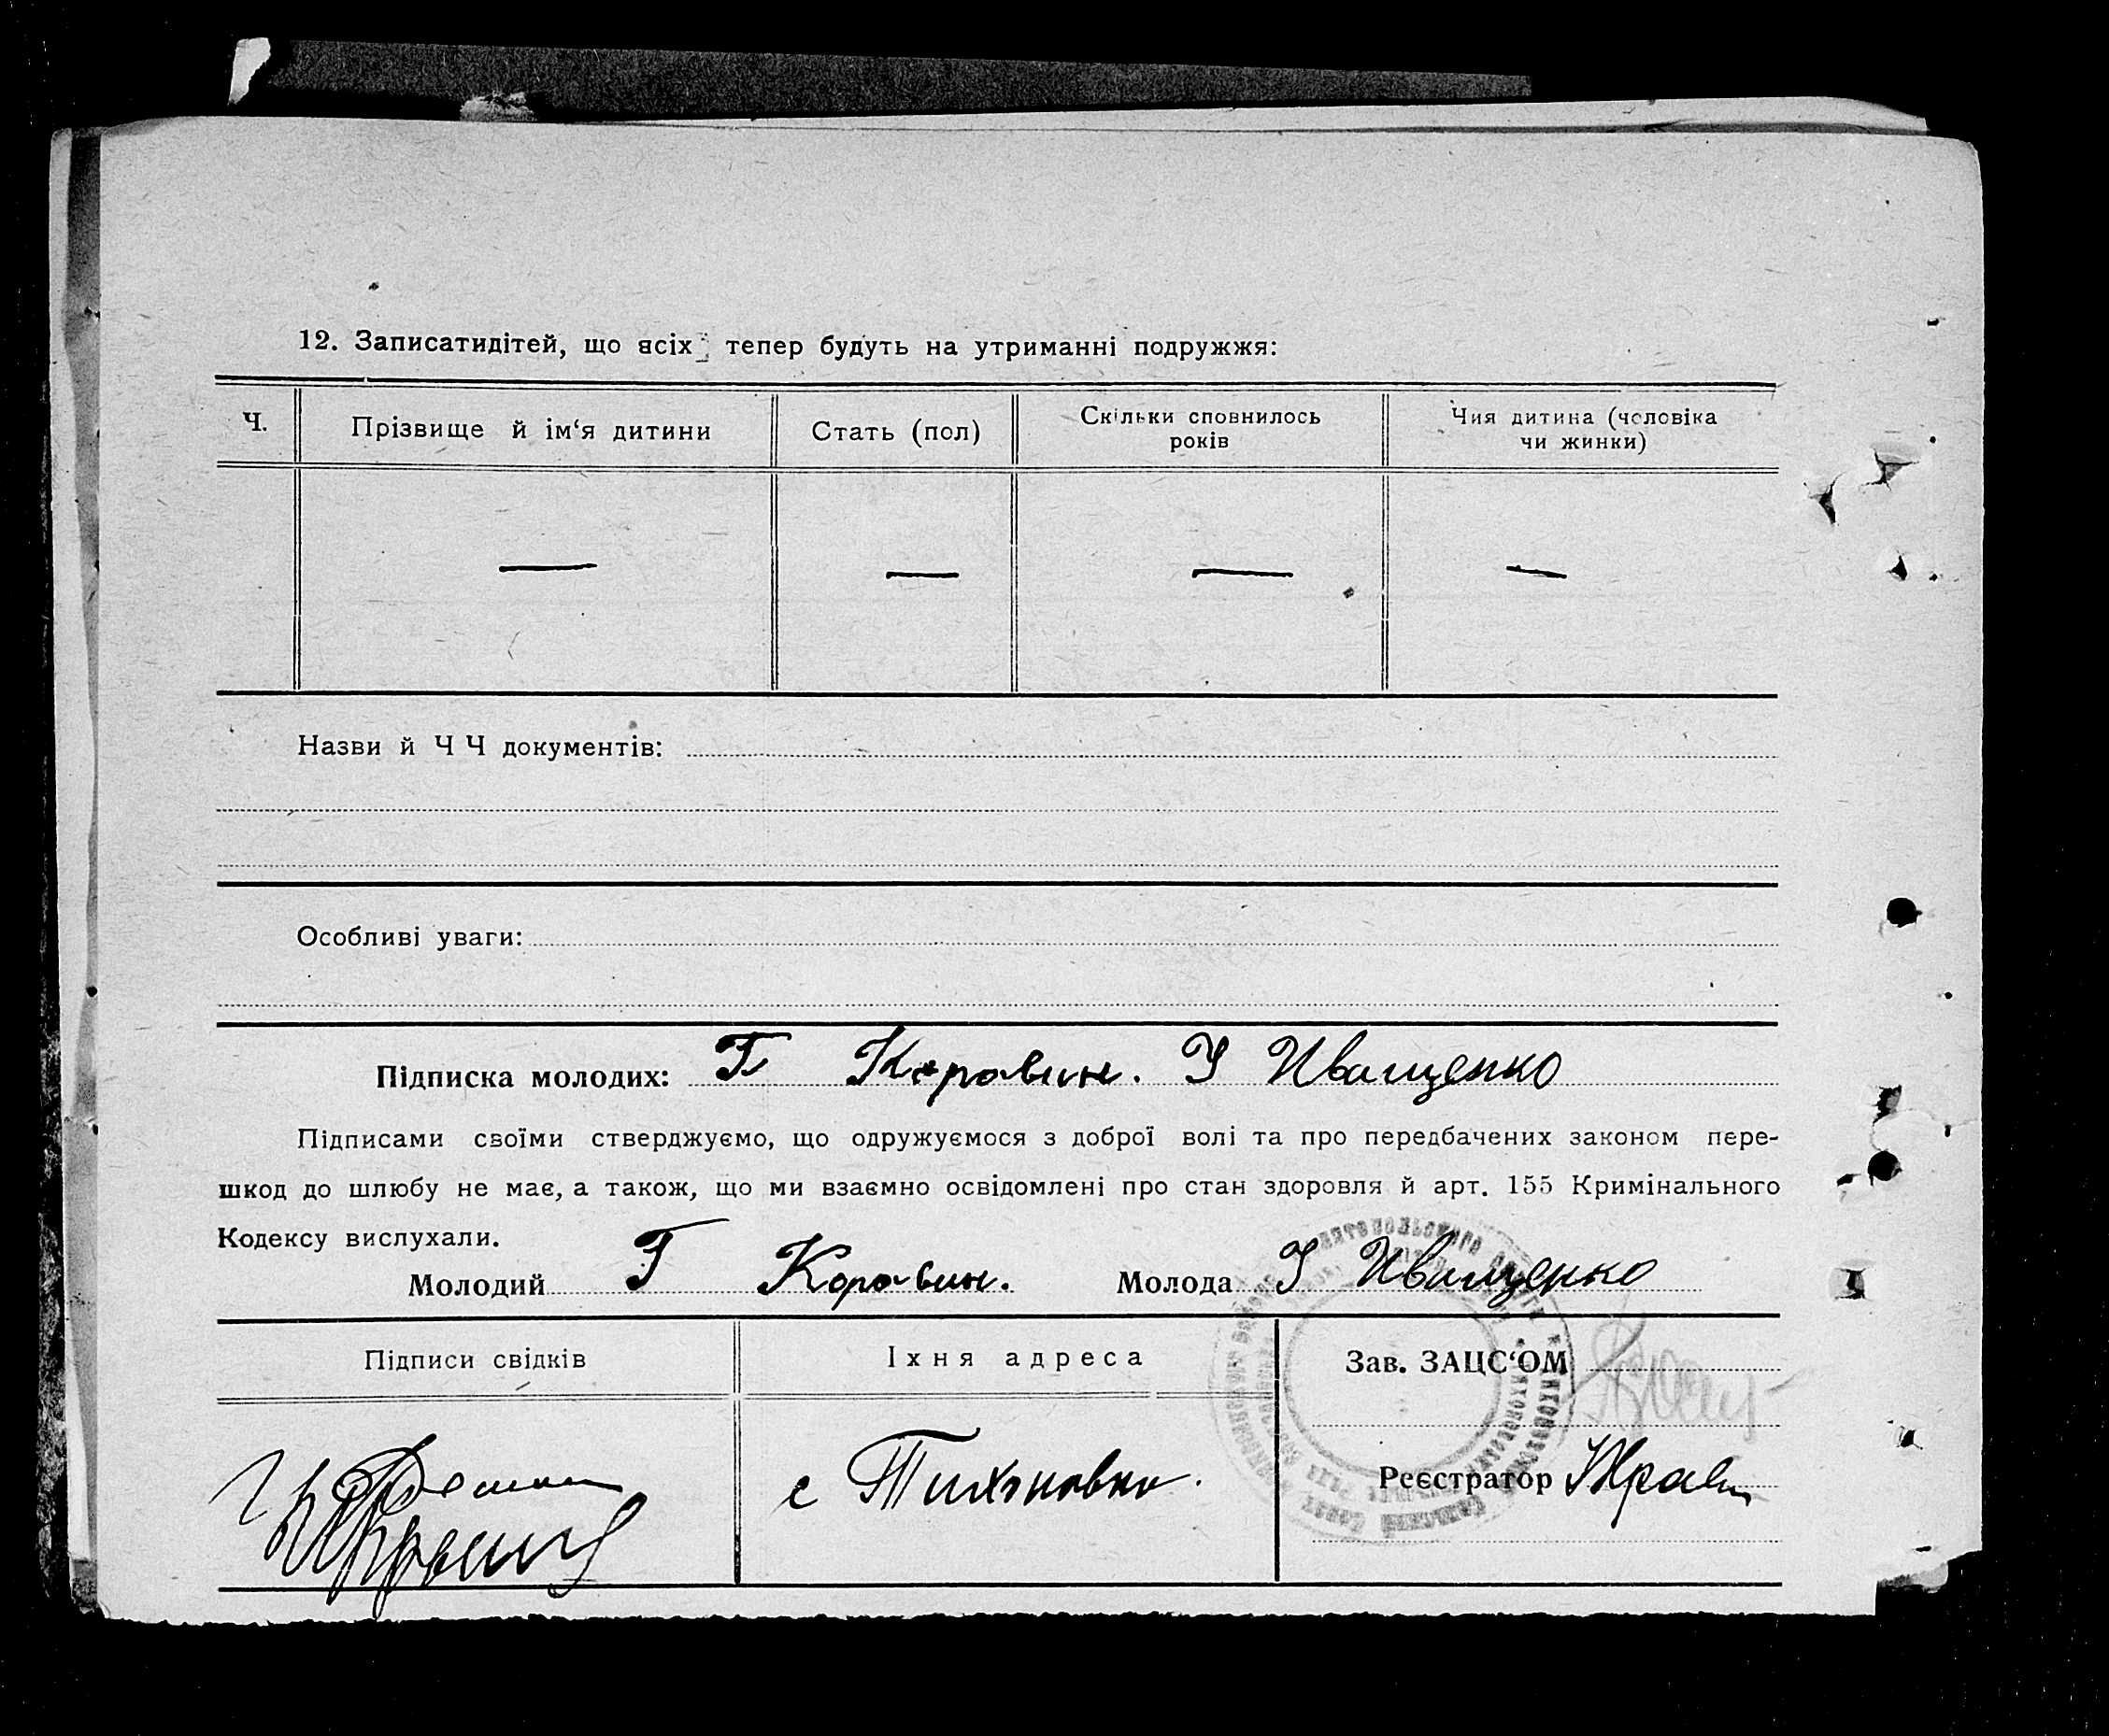 12. Записатидітей, що всіх тепер будуть на утриманні подружжя:
Ч.
Прізвище й ім‘я дитини
Стать (пол)
Скільки сповнилось
років
Чия дитина (чоловіка
чи жинки)
— — — —
Назви й Ч Ч документів:
Особливі уваги:
Підписка молодих: Г Коравин. І Иващенко
Підписами своїми стверджуємо, що одружуємося з доброї волі та про передбачених законом пере-
шкод до шлюбу не має, а також, що ми взаємно освідомлені про стан здоровля й арт. 155 Кримінального
Кодексу вислухали.
Молодий Г Коравин. Молода І Иващенко
Підписи свідків
Іхня адреса
Зав. ЗАЦС‘ОМ
с Тихоновка.
Реєстратор